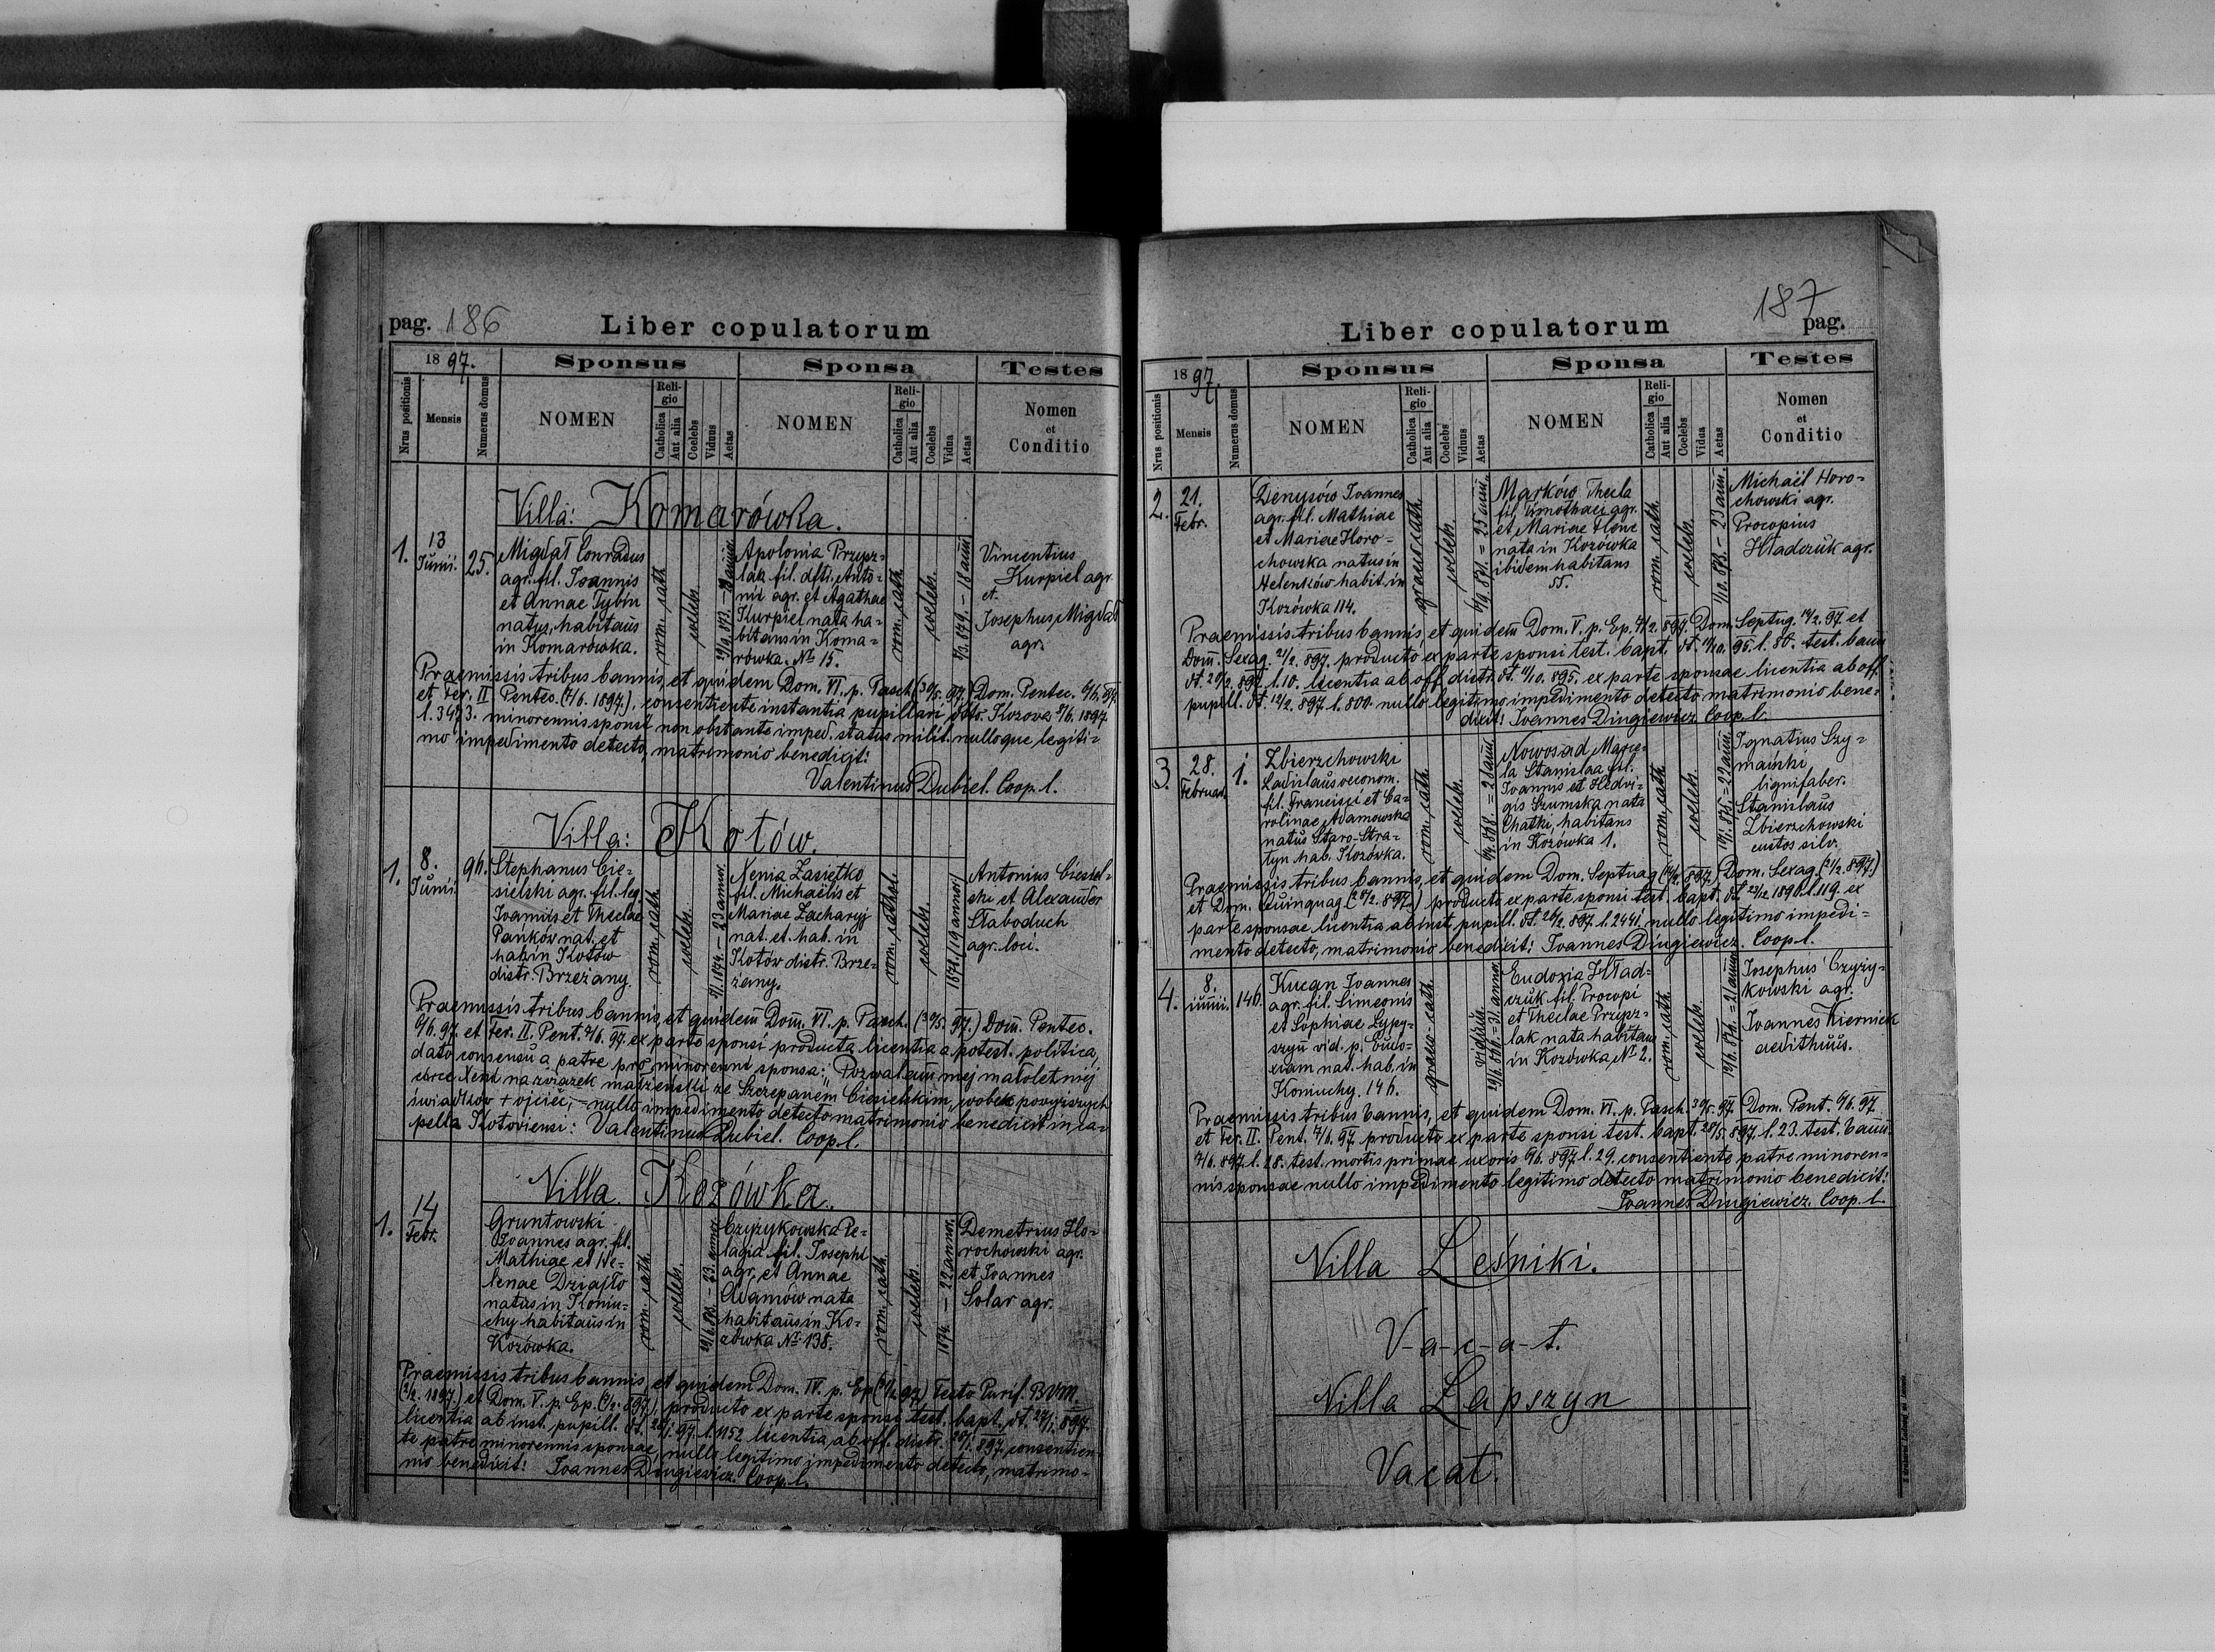 pag. 186
Liber copulatorum
1897.
Sponsus
Sponsa
Testes
Nrus positionis
Mensis
Numerus domus
NOMEN
Religio
Catholica
Aut alia
Coelebs
Viduus
Aetas
NOMEN
Religio
Catholica
Aut alia
Coelebs
Vidua
Aetas
Nomen
et
Conditio
Villa: Komarówka.
1.
13
Junii.
25.
Migdał Conradus
agr. fil. Joannis
et Annae Tybin
natus, habitans
in Komarówka.
rom. cath.
coelebs.
Apolonia Przypz-
lak fil. dfti. Anto-
nii agr. et Agathae
Kurpiel nata ha-
bitans in Koma-
rówka. No 15.
rom. cath.
coelebs.
3/3. 879. - 18 ann.
Vincentius
Kurpiel agr.
et.
Josephus Migdał
agr.
Praemissis tribus bannis, et quidem Dom. VI. p. Pasch. (30/5. 97.) Dom. Pentec. 6/6. 97.
et Fer. II Pentec. (7/6. 1897.), consentiente instantia pupillari ddto. Kozova 8/6. 1897.
l. 3473. minorennis sponsi non obstante imped. status milit. nulloque legiti-
mo impedimento detecto, matrimonio benedicit:
Valentinus Dubiel. Coop. l.
Villa: Kotów.
1.
8.
Junii.
96.
Stephanus Cie-
sielski agr. fil. leg.
Joannis et Theclae
Pańków nat. et
hab. in Kotów
distr. Brzeżany.
rom. cath.
coelebs.
1874. - 23 annor.
Xenia Zasiętko
fil. Michaëlis et
Mariae Zacharyj
nat. et. hab. in
Kotów distr. Brze-
żany.
rom. cathol.
coelebs.
1878. (19 annor.)
Antonius Ciesiel-
ski et Alexander
Słaboduch
agr. loci.
Praemissis tribus bannis, et quidem Dom. VI. p. Pasch. (30/5. 97.) Dom. Pentec.
6/6. 97. et Fer. II. Pent. 7/6. 97. ex parte sponsi producta licentia a potest. politica,
dato consensu a patre pro minorenni sponsa: "Pozwalam mej małoletniej
córce Xeni na związek małżeński ze Szczepanem Ciesielskim" wobec powyższych
świadków + ojciec, - nullo impedimento detecto matrimonio benedicit in ca-
pella Kotoviensi: Valentinus Dubiel. Coop. l.
Villa Kozówka.
1.
14
Febr.
Gruntowski
Joannes agr. fil.
Mathiae et He-
lenae Dziajło
natus in Koniu-
chy habitans in
Kozówka.
rom. cath.
coelebs.
23. annor.
Czyżykowska Pe-
lagia fil. Josephi
agr. et Annae
Adamów nata
habitans in Ko-
zówka No 138.
rom. cath.
coelebs.
1874. - 22 annor.
Demetrius Ho-
rochowski agr.
et Joannes
Solar agr.
Praemissis tribus bannis, et quidem Dom. IV. p. Ep. (31/1. 97) Festo Purif. BVM.
(2/2. 1897.) et Dom. V. p. Ep. (7/2. 897.), producto ex parte sponsi test. bapt. dt. 897.
licentia ab inst. pupill. dt. 97. l. 1152 licentia ab off. distr. 897. consentien-
te patre minorennis sponsae, nullo legitimo impedimento detecto, matrimo-
nio benedicit: Joannes Dingiewicz. Coop. l.
187
pag.
Liber copulatorum
1897.
Sponsus
Sponsa
Testes
Nrus positionis
Mensis
Numerus domus
NOMEN
Religio
Catholica
Aut alia
Coelebs
Viduus
Aetas
NOMEN
Religio
Catholica
Aut alia
Coelebs
Vidua
Aetas
Nomen
et
Conditio
2.
21.
Febr.
Denysów Joannes
agr. fil. Mathiae
et Mariae Horo-
chowska natus in
Helenków habit. in
Kozówka 114.
graeco cath.
coelebs.
871. = 25 ann.
Marków Thecla
fil. Timothaei agr.
et Mariae
nata in Kozówka
ibidem habitans
rom. cath.
coelebs.
873. - 23 ann.
Michaël Horo-
chowski agr.
Procopius
Hładczuk agr.
Praemissis tribus bannis, et quidem Dom. V. p. Ep. 7/2. 897. Dom. Septug. 14/2. 97. et
Dom. Sexag. 21/2. 897. producto ex parte sponsi test. bapt. dt. 95. l. 80. test. bann.
dt. 897. l. 10. licentia ab off. distr. dt. 895. ex parte sponsae licentia ab off.
pupill. dt. 12/2. 897. l. 800. nullo legitimo impedimento detecto matrimonio bene-
dicit: Joannes Dingiewicz. Coop. l.
3.
28.
Februar.
1.
Zbierzchowski
Ladislaus oeconom.
fil. Francisci et Ca-
rolinae Adamowska
natus Staro-Stra-
tyn hab. Kozówka.
rom. cath.
coelebs.
868. = 28 ann.
Nowosad Marce-
la Stanislaa fil.
Joannis et Hedvi-
gis Szumska nata
Chatki, habitans
in Kozówka 1.
rom. cath.
coelebs.
875. = 22 ann.
Ignatius Szy-
mański
lignifaber.
Stanislaus
Zbierzchowski
custos silv.
Praemissis tribus bannis, et quidem Dom. Septuag. (14/2. 897.) Dom. Sexag. (21/2. 897.)
et Dom. Quinquag. (28/2. 897.) producto ex parte sponsi test. bapt. dt. 1890. l. 119. ex
parte sponsae licentia ab inst. pupill. dt. 26/2. 897. l. 2441. nullo legitimo impedi-
mento detecto, matrimonio benedicit: Joannes Dingiewicz. Coop. l.
4.
8.
iunii.
146.
Kucan Joannes
agr. fil. Simeonis
et Sophiae Lypy-
szyn vid. p. Eudo-
xiam nat. hab. in
Koniuchy 146.
graeco-cath.
viduus.
31. annor.
Eudoxia Hład-
czuk fil. Procopi
et Theclae Przypz-
lak nata habitans
in Kozówka No 2.
rom. cath.
coelebs.
876. = 21 annor.
Josephus Czyży-
kowski agr.
Joannes Kiernick
aedituus.
Praemissis tribus bannis, et quidem Dom. VI. p. Pasch. 30/5. 97. Dom. Pent. 6/6. 97.
et Fer. II. Pent. 7/6. 97. producto ex parte sponsi test. bapt. 28/5. 897. l. 23. test. bann.
7/6. 897. l. 28. test. mortis primae uxoris 9/6. 897. l. 29. consentiente patre minoren-
nis sponsae nullo impedimento legitimo detecto matrimonio benedicit:
Joannes Dingiewicz. Coop. l.
Villa Leśniki.
V-a-c-a-t.
Villa Łapszyn
Vacat.